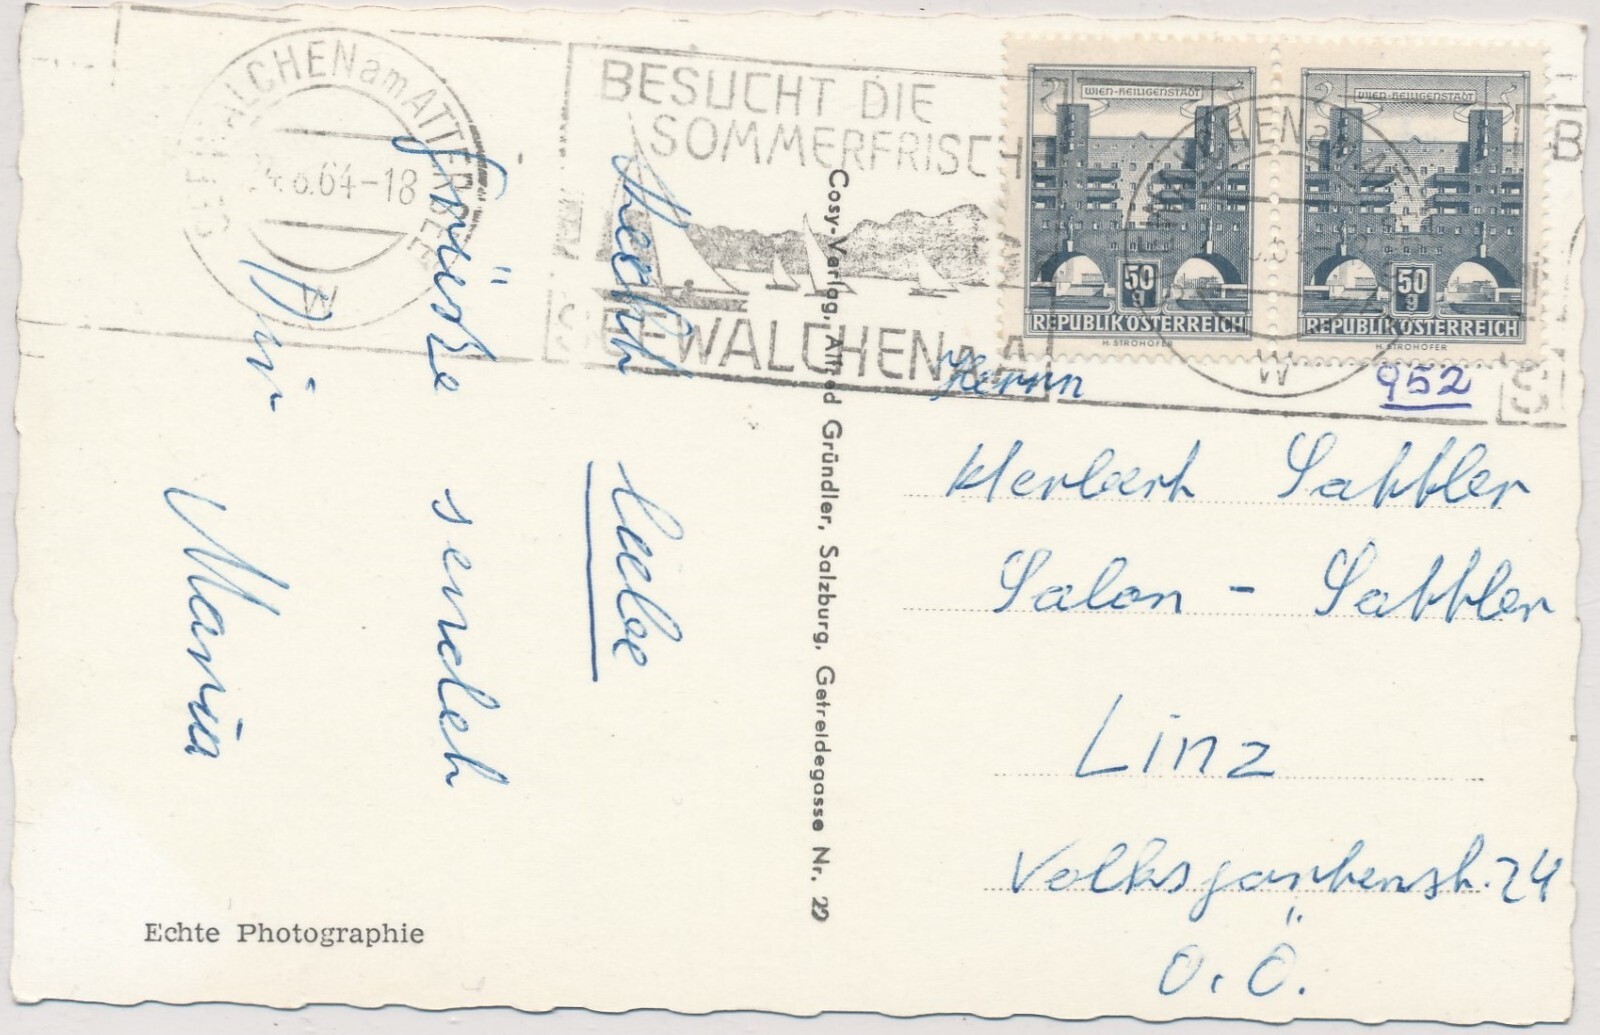 SEEWALCHEN am ATTERSEE
.64-18
W
BESUCHT DIE
SOMMERFRISCH
SEEWALCHEN A. A
WIEN-HEILIGENSTADT
50
g
REPUBLIK ÖSTERREICH
H. STROHOFER
WIEN-HEILIGENSTADT
50
g
REPUBLIK ÖSTERREICH
H. STROHOFER
W
B
952
Recht liebe
Grüße sendet
Dir Maria
Cosy-Verlag, Alfred Gründler, Salzburg, Getreidegasse Nr. 22
Herrn
Herbert Sattler
Salon - Sattler
Linz
Volksgartenstr. 24
O.Ö.
Echte Photographie